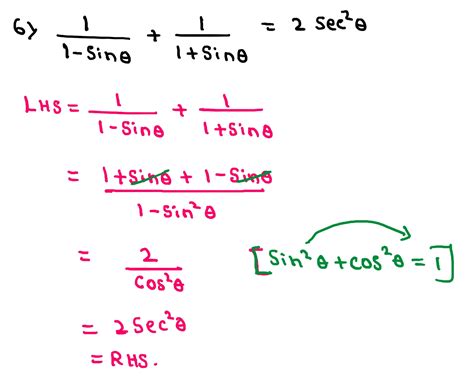 6) 1/(1-Sinθ) + 1/(1+Sinθ) = 2 Sec²θ
LHS = 1/(1-Sinθ) + 1/(1+Sinθ)
= (1+Sinθ + 1-Sinθ)/(1-Sin²θ)
= 2/Cos²θ [Sin²θ+cos²θ = 1]
= 2Sec²θ
= RHS.